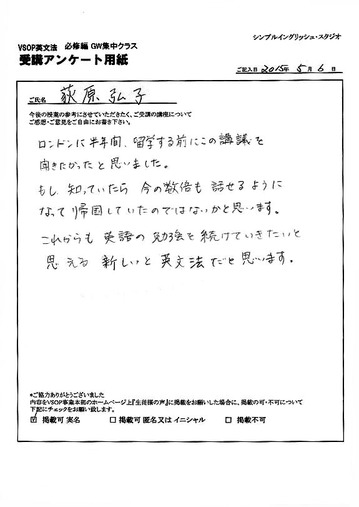 シンプルイングリッシュ・スタジオ
VSOP英文法 必修編 GW集中クラス
受講アンケート用紙
ご記入日 2015年 5月 6日
ご氏名 荻原弘子
今後の授業の参考にさせていただきたく、ご受講の講座について
ご感想・ご意見をご自由にお書き下さい。
ロンドンに半年間、留学する前にこの講議を
聞きたかったと思いました。
もし、知っていたら 今の数倍も 話せるように
なって 帰国していたのではないかと思います。
これからも 英語の 勉強を続けていきたいと
思える 新しいと 英文法だと思います。
*ご協力ありがとうございました
内容をVSOP事業本部のホームページ上『生徒様の声』に掲載をお願いした場合に、掲載の可・不可について
下記にチェックをお願い致します。
☑ 掲載可 実名 □ 掲載可 匿名又は イニシャル □ 掲載不可